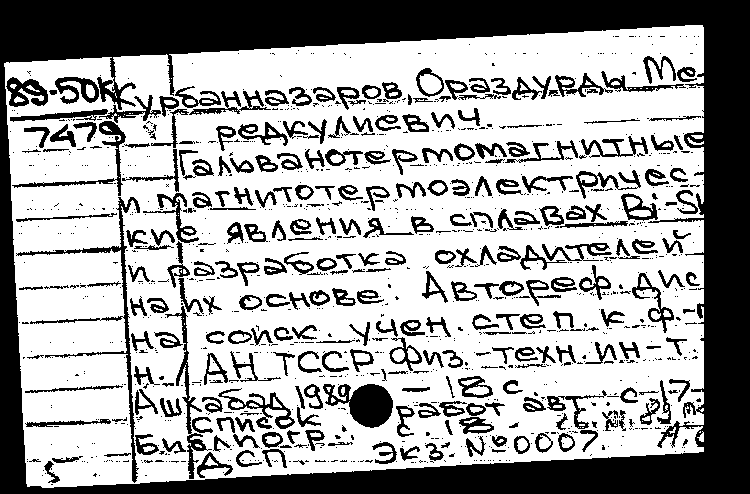 89-50к Курбанназаров, Ораздурды Ме-
7479 редкулиевич.
Гальванотермомагнитные
и магнитотермоэлектричес-
кие явления в сплавах Bi-Sb
и разработка охладителей
на их основе: Автореф. дис
на соиск. учен. степ. к. ф.-м
н. / АН ТССР, Физ.-техн. ин-т.
Ашхабад 1989 - 18 с
список работ авт.: с 17-
Библиогр.: с. 18.
ДСП. Экз. №0007.
5